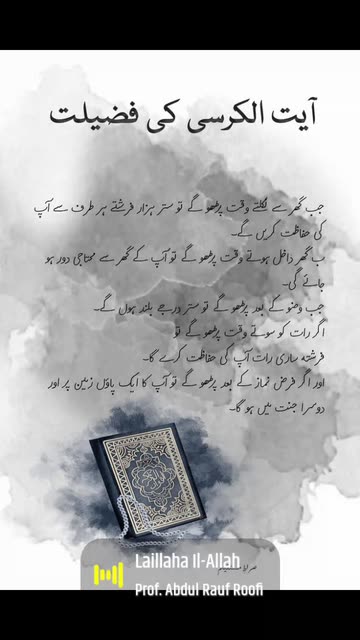 آیت الکرسی کی فضیلت
جب گھر سے نکلتے وقت پڑھو گے تو ستر ہزار فرشتے ہر طرف سے آپ
کی حفاظت کریں گے۔
ب گھر داخل ہوتے وقت پڑھو گے تو آپ کے گھر سے محتاجی دور ہو
جائے گی۔
جب وضو کے بعد پڑھو گے تو ستر درجے بلند ہوں گے۔
اگر رات کو سوتے وقت پڑھو گے تو
فرشتہ ساری رات آپ کی حفاظت کرے گا۔
اور اگر فرض نماز کے بعد پڑھو گے تو آپ کا ایک پاؤں زمین پر اور
دوسرا جنت میں ہو گا۔
Laillaha Il-Allah
Prof. Abdul Rauf Roofi